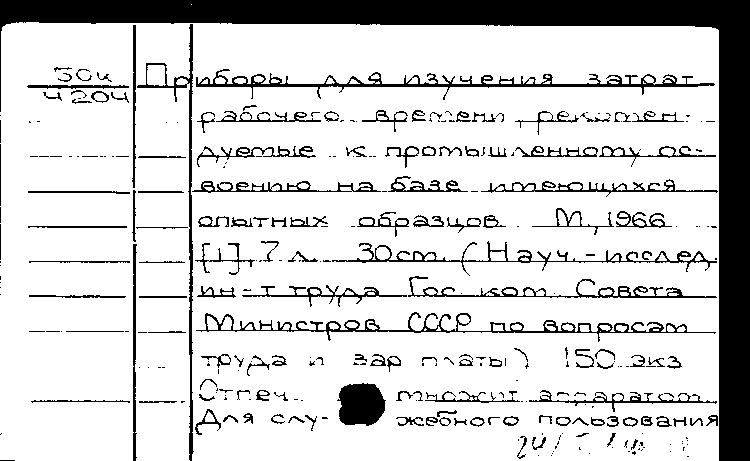 50и Приборы для изучения затрат
Ч204
рабочего времени, рекомен-
дуемые к промышленному ос-
воению на базе имеющихся
опытных образцов. М., 1966
[1], 7 л. 30см. (Науч.-исслед.
ин-т труда Гос ком Совета
Министров СССР по вопросам
труда и зар платы) 150 экз
Отпеч. множит аппаратом
Для слу- жебного пользования